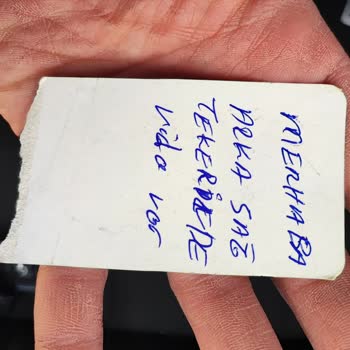 MERHABA
ARKA SAĞ
TEKERDEDE
vida var